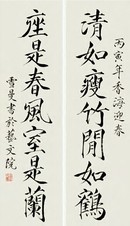 丙寅年香海迎春
清如瘦竹閒如鶴
座是春風室是蘭
雪曼書於藝文院